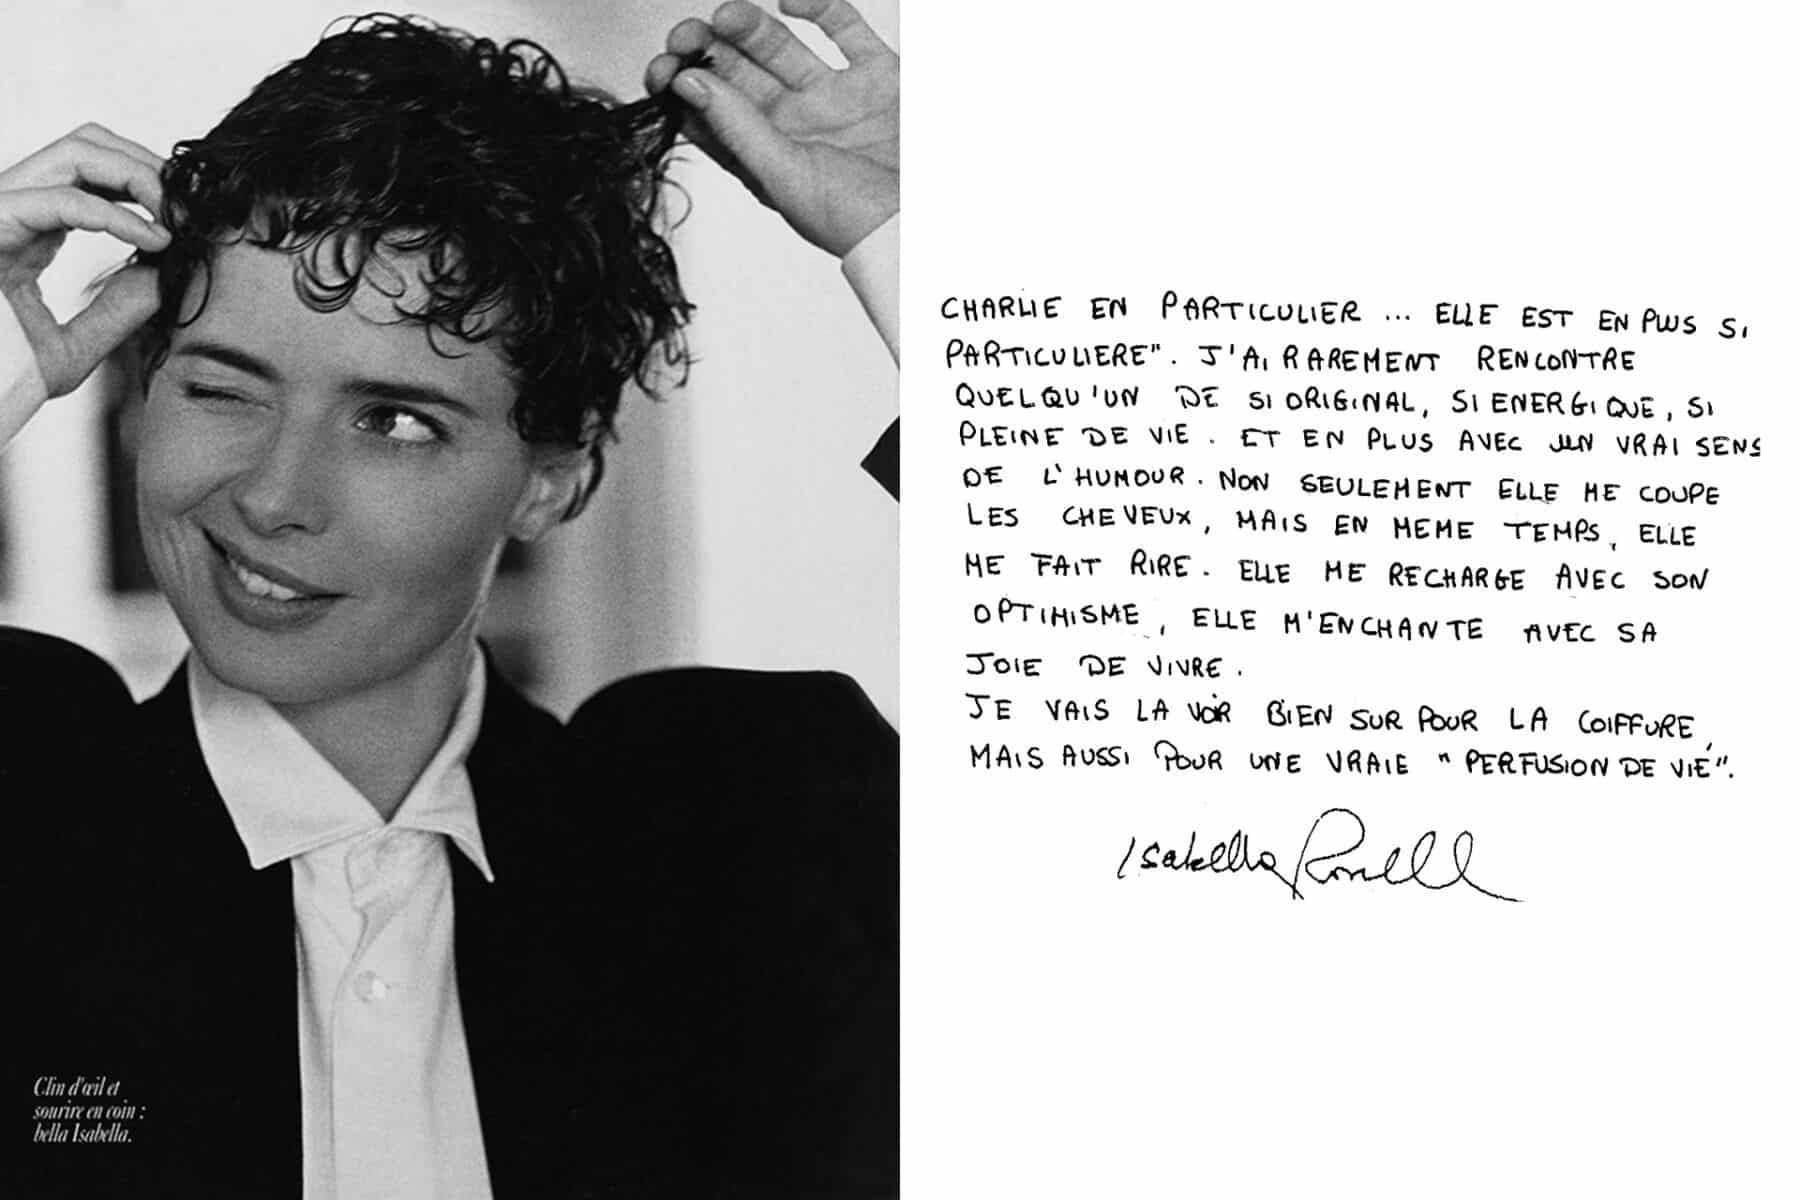 Clin d'œil et
sourire en coin :
bella Isabella.
CHARLIE EN PARTICULIER ... ELLE EST EN PLUS SI
PARTICULIERE". J'AI RAREMENT RENCONTRE
QUELQU'UN DE SI ORIGINAL, SI ENERGIQUE, SI
PLEINE DE VIE. ET EN PLUS AVEC UN VRAI SENS
DE L'HUMOUR. NON SEULEMENT ELLE ME COUPE
LES CHEVEUX, MAIS EN MEME TEMPS, ELLE
ME FAIT RIRE. ELLE ME RECHARGE AVEC SON
OPTIMISME, ELLE M'ENCHANTE AVEC SA
JOIE DE VIVRE.
JE VAIS LA VOIR BIEN SUR POUR LA COIFFURE,
MAIS AUSSI POUR UNE VRAIE "PERFUSION DE VIE".
Isabella